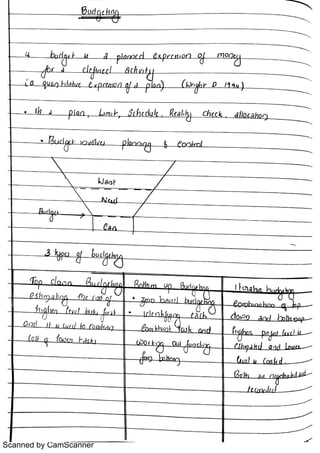 Budgeting
a budget is a planned expression of money
for a defined activity
(a quantitative expression of a plan) (Wright D 1994)
• It a plan, Limit, Schedule, Reality check, allocation
• Budget involves planning & control
Want
Need
Budget
Can
3 types of budgeting
Top down Budgeting
estimating the cost of
higher level tasks first
and it is used to contain
cost of lower tasks
Bottom up Budgeting
• zero based budgeting
• identifying each
constituent task and
working out funding
from bottom
Iterative budgeting
Combination of top
down and bottom up
higher project level is
estimated and lower
level is costed.
Both are negotiated and
reconciled
Scanned by CamScanner